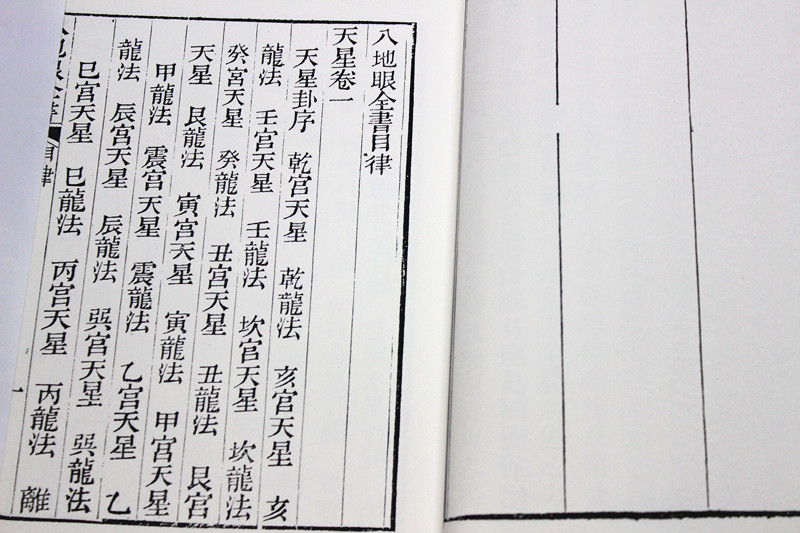 八地眼全書目律
天星卷一
天星卦序 乾宫天星 乾龍法 亥宫天星 亥
龍法 壬宫天星 壬龍法 坎宫天星 坎龍法
癸宫天星 癸龍法 丑宫天星 丑龍法 艮宫
天星 艮龍法 寅宫天星 寅龍法 甲宫天星
甲龍法 震宫天星 震龍法 乙宫天星 乙
龍法 辰宫天星 辰龍法 巽宫天星 巽龍法
巳宫天星 巳龍法 丙宫天星 丙龍法 離
目律 一